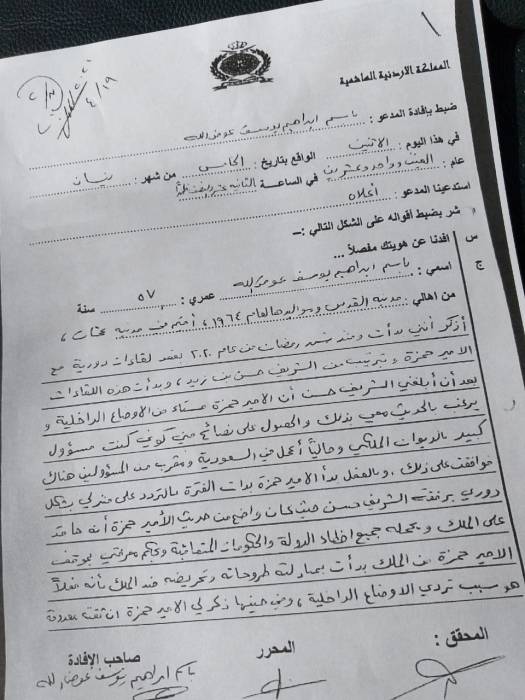 ٢٠٢١
٤/١٩
المملكة الاردنية الهاشمية
ضبط بإفادة المدعو : باسم ابراهيم يوسف عوض الله
في هذا اليوم : الاثنين الواقع بتاريخ : الخامس من شهر : نيسان
عام : الفين وواحد وعشرين في الساعة الثانية عشر ونصف ظهراً
استدعينا المدعو : أعلاه
شر بضبط اقواله على الشكل التالي :-
س افدنا عن هويتك مفصلاً ...
ج اسمي : باسم ابراهيم يوسف عوض الله عمري : ٥٧ سنة
من اهالي : مدينة القدس ومواليدها لعام ١٩٦٤ ، أقيم في مدينة عمان ،
أذكر أنني بدأت ومنذ شهر رمضان من عام ٢٠٢٠ بعقد لقاءات دورية مع
الامير حمزة وبترتيب من الشريف حسن بن زيد ، وبدأت هذه اللقاءات
بعد أن أبلغني الشريف حسن أن الامير حمزة مستاء من الاوضاع الداخلية و
يرغب بالحديث معي بذلك والحصول على نصائح مني كوني كنت مسؤول
كبير بالديوان الملكي وحالياً أعمل في السعودية ومقرب من المسؤولين هناك
فوافقت على ذلك ، وبالفعل بدأ الامير حمزة بذات الفترة بالتردد على منزلي بشكل
دوري برفقة الشريف حسن حيث كان واضح من حديث الأمير حمزة أنه حاقد
على الملك ويحمله جميع اخطاء الدولة والحكومات المتعاقبة وبحكم معرفتي بموقف
الامير حمزة من الملك بدأت بمبادلته طروحاته وتحريضه ضد الملك بأنه فعلاً
هو سبب تردي الاوضاع الداخلية ، وفي حينها ذكر لي الامير حمزة ان ثقته معدومة
المحقق :
المحرر
صاحب الإفادة
باسم ابراهيم يوسف عوض الله